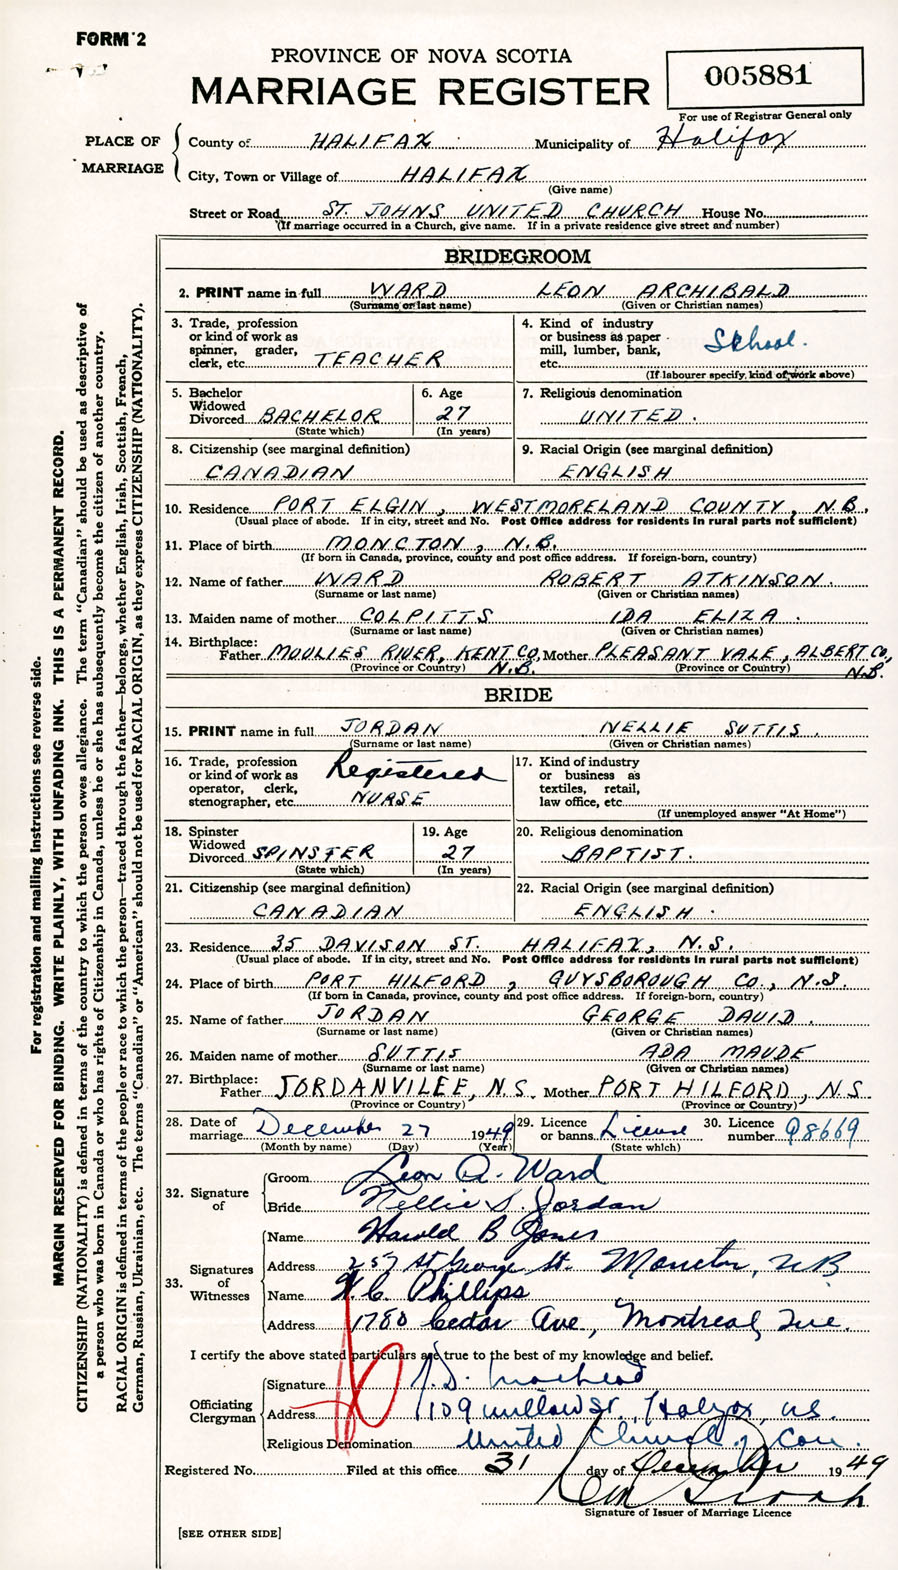 FORM 2
PROVINCE OF NOVA SCOTIA
MARRIAGE REGISTER
005881
For use of Registrar General only
PLACE OF MARRIAGE
County of HALIFAX Municipality of Halifax
City, Town or Village of HALIFAX
(Give name)
Street or Road ST. JOHNS UNITED CHURCH House No.
(If marriage occurred in a Church, give name. If in a private residence give street and number)
BRIDEGROOM
2. PRINT name in full WARD LEON ARCHIBALD
(Surname or last name) (Given or Christian names)
3. Trade, profession or kind of work as spinner, grader, clerk, etc. TEACHER
4. Kind of industry or business as paper mill, lumber, bank, etc. School.
(If labourer specify kind of work above)
5. Bachelor Widowed Divorced BACHELOR
(State which)
6. Age 27
(In years)
7. Religious denomination
UNITED.
8. Citizenship (see marginal definition)
CANADIAN
9. Racial Origin (see marginal definition)
ENGLISH
10. Residence PORT ELGIN, WESTMORELAND COUNTY, N.B.
(Usual place of abode. If in city, street and No. Post Office address for residents in rural parts not sufficient)
11. Place of birth MONCTON, N.B.
(If born in Canada, province, county and post office address. If foreign-born, country)
12. Name of father WARD ROBERT ATKINSON.
(Surname or last name) (Given or Christian names)
13. Maiden name of mother COLPITTS IDA ELIZA.
(Surname or last name) (Given or Christian names)
14. Birthplace:
Father MOULIES RIVER, KENT CO, N.B. Mother PLEASANT VALE, ALBERT CO, N.B.
(Province or Country) (Province or Country)
BRIDE
15. PRINT name in full JORDAN NELLIE SUTTIS.
(Surname or last name) (Given or Christian names)
16. Trade, profession or kind of work as operator, clerk, stenographer, etc. Registered NURSE
17. Kind of industry or business as textiles, retail, law office, etc.
(If unemployed answer "At Home")
18. Spinster Widowed Divorced SPINSTER
(State which)
19. Age 27
(In years)
20. Religious denomination
BAPTIST.
21. Citizenship (see marginal definition)
CANADIAN
22. Racial Origin (see marginal definition)
ENGLISH.
23. Residence 35 DAVISON ST. HALIFAX, N.S.
(Usual place of abode. If in city, street and No. Post Office address for residents in rural parts not sufficient)
24. Place of birth PORT HILFORD, GUYSBOROUGH CO., N.S.
(If born in Canada, province, county and post office address. If foreign-born, country)
25. Name of father JORDAN GEORGE DAVID.
(Surname or last name) (Given or Christian names)
26. Maiden name of mother SUTTIS ADA MAUDE
(Surname or last name) (Given or Christian names)
27. Birthplace:
Father JORDANVILEE, N.S. Mother PORT HILFORD, N.S
(Province or Country) (Province or Country)
28. Date of marriage December 27 1949
(Month by name) (Day) (Year)
29. Licence or banns License
(State which)
30. Licence number 98669
32. Signature of
Groom Leon A. Ward
Bride Nellie S. Jordan
33. Signatures of Witnesses
Name Harold B Jones
Address 257 St George St. Moncton, NB
Name H. C. Phillips
Address 1780 Cedar Ave, Montreal, Que.
I certify the above stated particulars are true to the best of my knowledge and belief.
Officiating Clergyman
Signature
Address 109 Willow St., Halifax, N.S.
Religious Denomination United Church of Can.
Registered No. Filed at this office 31 day of December 1949
Signature of Issuer of Marriage Licence
[SEE OTHER SIDE]
For registration and mailing instructions see reverse side.
MARGIN RESERVED FOR BINDING. WRITE PLAINLY, WITH UNFADING INK. THIS IS A PERMANENT RECORD.
CITIZENSHIP (NATIONALITY) is defined in terms of the country to which the person owes allegiance. The term "Canadian" should be used as descriptive of
a person who was born in Canada or who has rights of Citizenship in Canada, unless he or she has subsequently become the citizen of another country.
RACIAL ORIGIN is defined in terms of the people or race to which the person—traced through the father—belongs, whether English, Irish, Scottish, French,
German, Russian, Ukrainian, etc. The terms "Canadian" or "American" should not be used for RACIAL ORIGIN, as they express CITIZENSHIP (NATIONALITY).